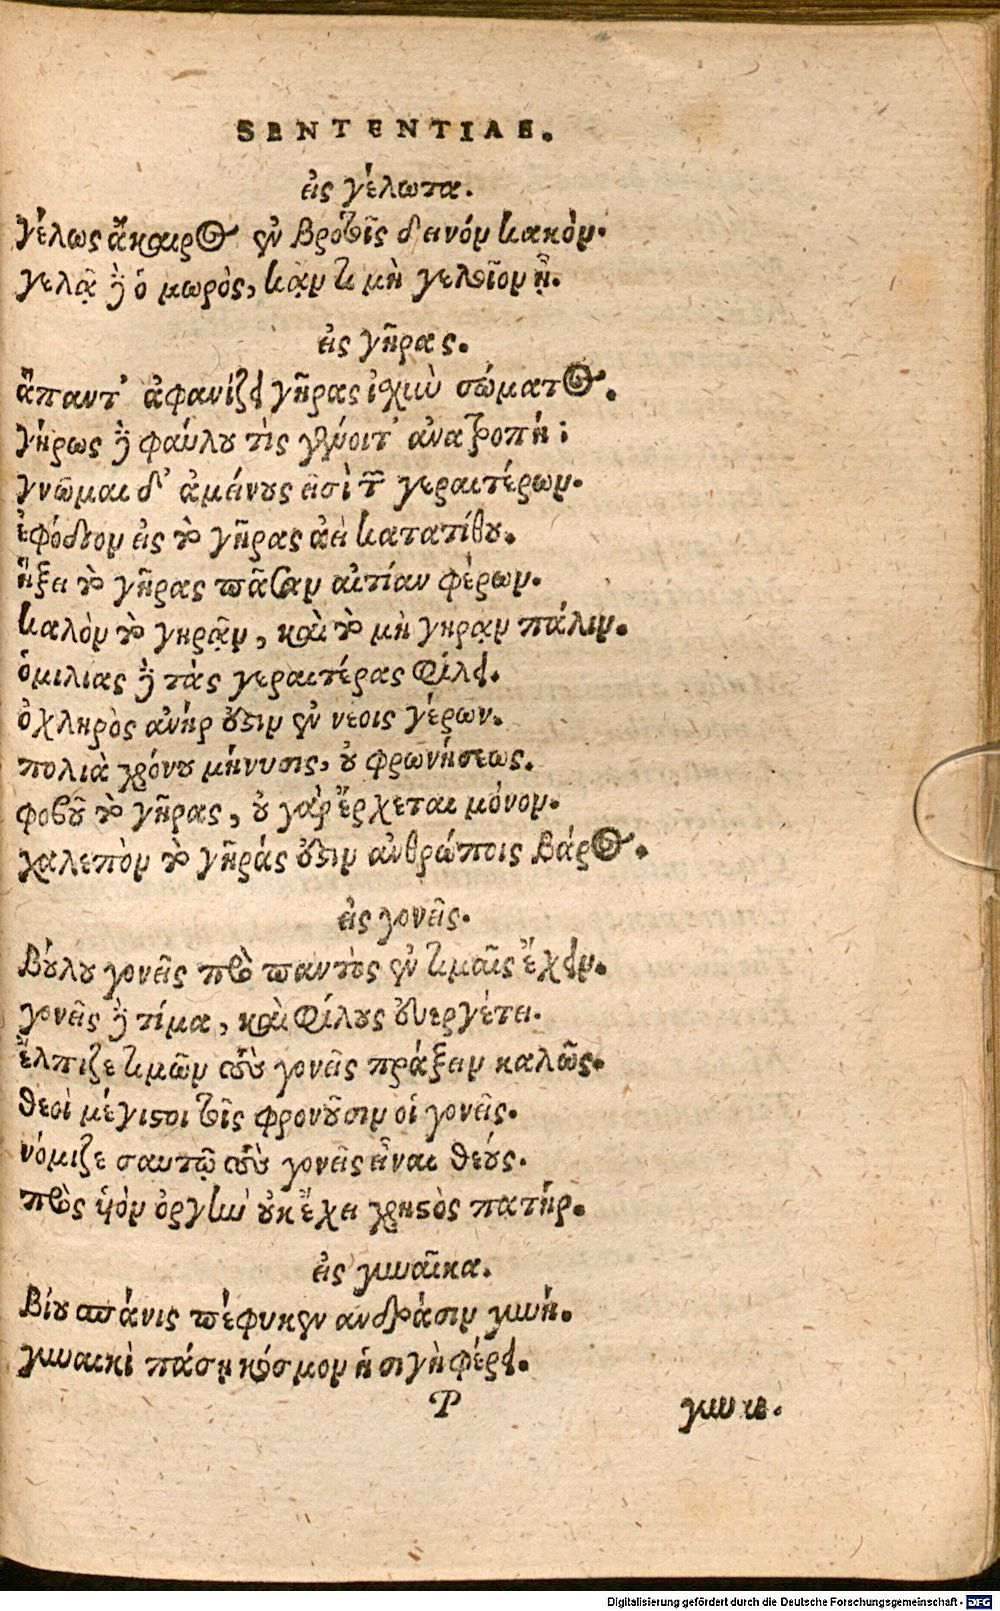 SENTENTIAE.
εἰς γέλωτα.
Γέλως ἄκαιρος ἐν βροτοῖς δεινόν κακόν.
γελᾷ δ̓ ὁ μωρὸς, κᾄν τι μὴ γελοῖον ᾖ.
εἰς γῆρας.
ἅπαντ' ἀφανίζει γῆρας ἰχὺν σώματος.
γήρως δ̓ φαύλου τίς γένοιτ' ἀνατροπή;
γνῶμαι δ' ἀμείνους εἰσὶ τῶν γεραιτέρων.
ἐφόδιον εἰς τὸ γῆρας ἀεὶ κατατίθου.
ἥξει τὸ γῆρας πᾶσαν αἰτίαν φέρων.
καλὸν τὸ γηρᾷν, καὶ τὸ μὴ γηρᾳν πάλιν.
ὁμιλιας δ̓ τὰς γεραιτέρας φίλει.
ὀχληρὸς ἀνήρ ὅστιν ἐν νέοις γέρων.
πολιὰ χρόνου μήνυσις, οὐ φρωνήσεως.
φοβοῦ τὸ γῆρας, οὐ γὰρ ἔρχεται μόνον.
χαλεπὸν τὸ γῆράς ὅστιν ἀνθρώποις βάρος.
εἰς γονεῖς.
Βούλου γονεῖς πρὸ παντὸς ἐν τιμαῖς ἔχειν.
γονεῖς δ̓ τίμα, καὶ φίλους εὐεργέτει.
ἔλπιζε τιμῶν τοὺς γονεῖς πράξειν καλῶς.
θεοὶ μέγιστοι τοῖς φρονοῦσιν οἱ γονεῖς.
νόμιζε σαυτῷ τοὺς γονεῖς εἶναι θεούς.
πρὸς υἱὸν ὀργὴν οὐκ ἔχει χρηστὸς πατήρ.
εἰς γυναῖκα.
Βίου σπάνις πέφυκεν ανδράσιν γυνή.
γυναικὶ πάσῃ κόσμον ἡ σιγὴ φέρει.
P
γυναι.
Digitalisierung gefördert durch die Deutsche Forschungsgemeinschaft - DFG